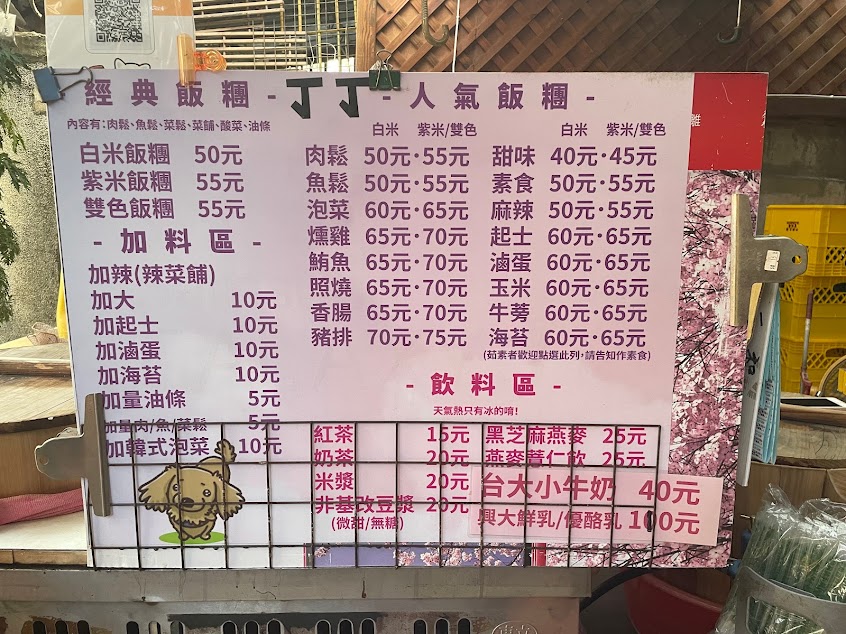 經典飯糰-丁丁-人氣飯糰-
內容有:肉鬆、魚鬆、菜鬆、菜餔、酸菜、油條
白米飯糰 50元
紫米飯糰 55元
雙色飯糰 55元
-加料區-
加辣(辣菜餔)
加大 10元
加起士 10元
加滷蛋 10元
加海苔 10元
加量油條 5元
加量肉/魚/菜鬆 5元
加韓式泡菜 10元
白米 紫米/雙色
肉鬆 50元·55元
魚鬆 50元·55元
泡菜 60元·65元
燻雞 65元·70元
鮪魚 65元·70元
照燒 65元·70元
香腸 65元·70元
豬排 70元·75元
白米 紫米/雙色
甜味 40元·45元
素食 50元·55元
麻辣 50元·55元
起士 60元·65元
滷蛋 60元·65元
玉米 60元·65元
牛蒡 60元·65元
海苔 60元·65元
(茹素者歡迎點選此列,請告知作素食)
-飲料區-
天氣熱只有冰的唷!
紅茶 15元
奶茶 20元
米漿 20元
非基改豆漿 20元
(微甜/無糖)
黑芝麻燕麥 25元
燕麥薏仁飲 25元
台大小牛奶 40元
興大鮮乳/優酪乳 100元